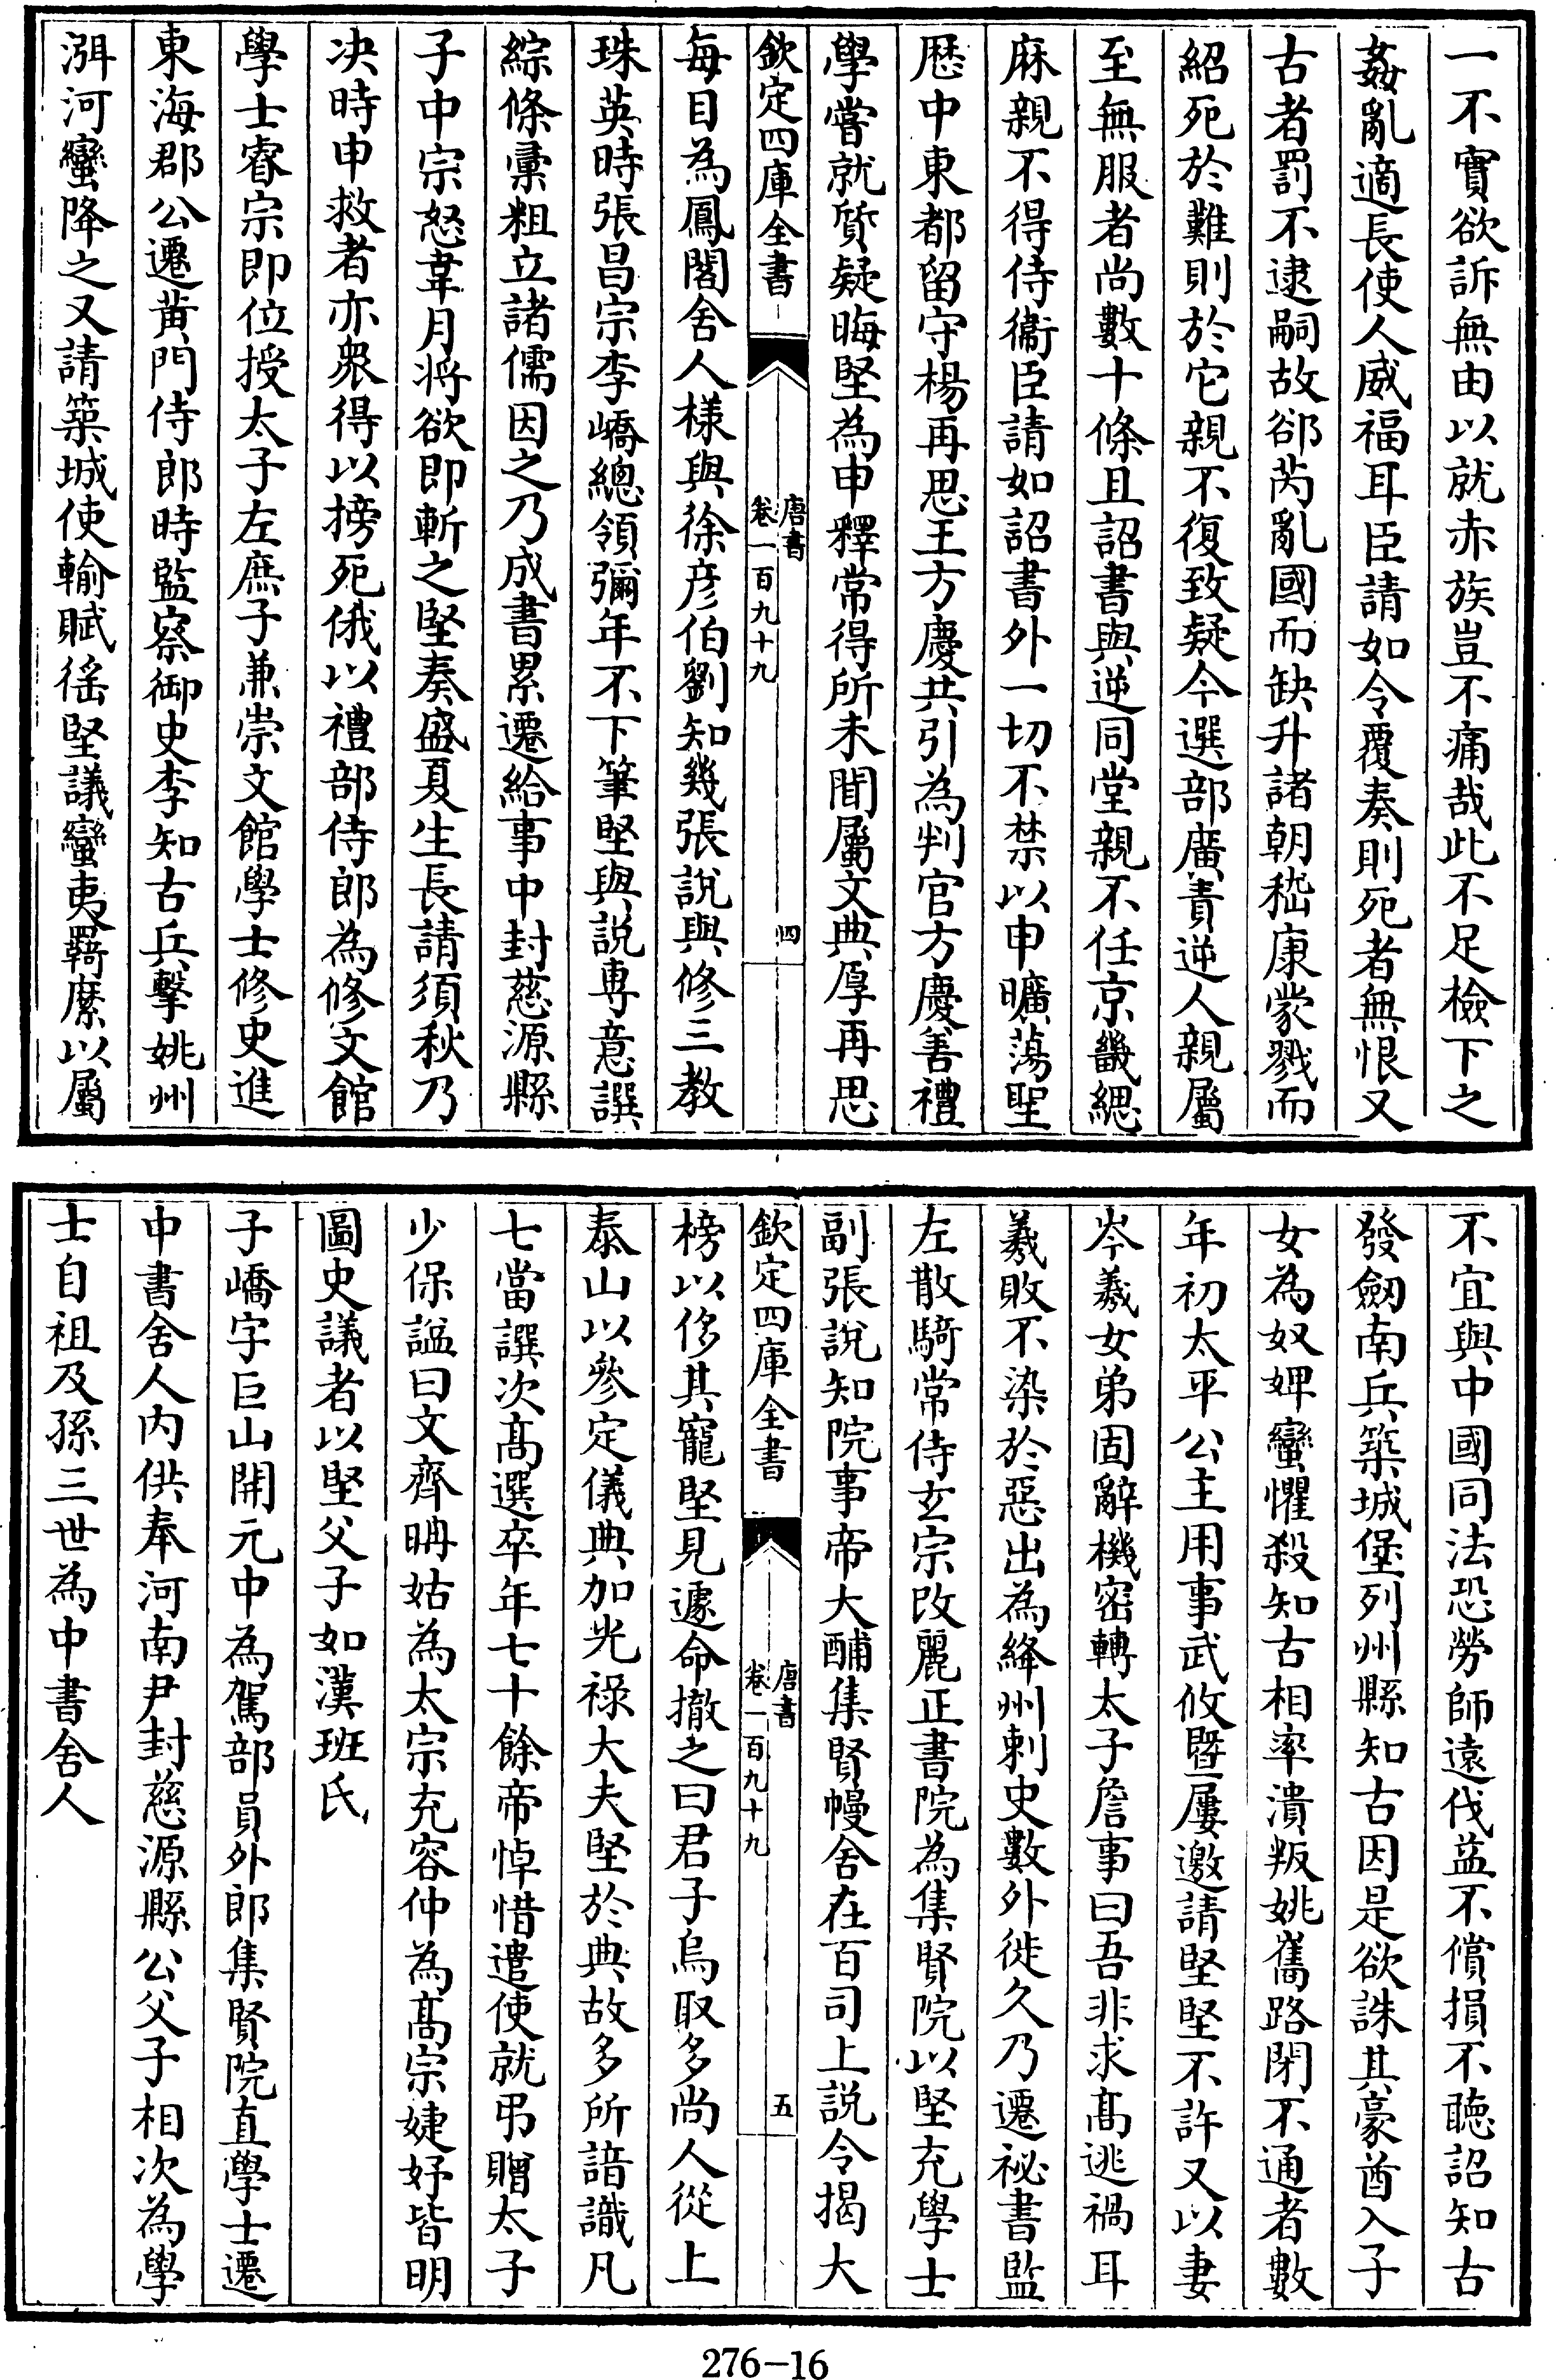 一不實欲訴無由以就赤族豈不痛哉此不足檢下之
姦亂適長使人威福耳臣請如令覆奏則死者無恨又
古者罰不逮嗣故郤芮亂國而缺升諸朝嵇康蒙戮而
紹死於難則於它親不復致疑今選部廣責逆人親屬
至無服者尚數十條且詔書與逆同堂親不任京畿緦
麻親不得侍衞臣請如詔書外一切不禁以申曠蕩聖
厯中東都留守楊再思王方慶共引為判官方慶善禮
學嘗就質疑晦堅為申釋常得所未聞屬文典厚再思
欽定四庫全書
唐書
卷一百九十九
四
每目為鳳閣舍人様與徐彦伯劉知幾張說與修三教
珠英時張昌宗李嶠總領彌年不下筆堅與說專意譔
綜條彚粗立諸儒因之乃成書累遷給事中封慈源縣
子中宗怒韋月將欲即斬之堅奏盛夏生長請須秋乃
決時申救者亦衆得以搒死俄以禮部侍郎為修文館
學士睿宗即位授太子左庶子兼崇文館學士修史進
東海郡公遷黄門侍郎時監察御史李知古兵擊姚州
洱河蠻降之又請築城使輸賦徭堅議蠻夷羇縻以屬
不宜與中國同法恐勞師遠伐益不償損不聽詔知古
發劒南兵築城堡列州縣知古因是欲誅其豪酋入子
女為奴婢蠻懼殺知古相率潰叛姚嶲路閉不通者數
年初太平公主用事武攸暨屢邀請堅堅不許又以妻
岑羲女弟固辭機密轉太子詹事曰吾非求髙逃禍耳
羲敗不染於惡出為絳州刺史數外徙久乃遷祕書監
左散騎常侍玄宗改麗正書院為集賢院以堅充學士
副張說知院事帝大酺集賢幔舍在百司上說令揭大
欽定四庫全書
唐書
卷一百九十九
五
榜以侈其寵堅見遽命撤之曰君子烏取多尚人從上
泰山以參定儀典加光祿大夫堅於典故多所諳識凡
七當譔次髙選卒年七十餘帝悼惜遣使就弔贈太子
少保諡曰文齊聃姑為太宗充容仲為髙宗婕妤皆明
圖史議者以堅父子如漢班氏
子嶠字巨山開元中為駕部員外郎集賢院直學士遷
中書舍人内供奉河南尹封慈源縣公父子相次為學
士自祖及孫三世為中書舍人
276-16